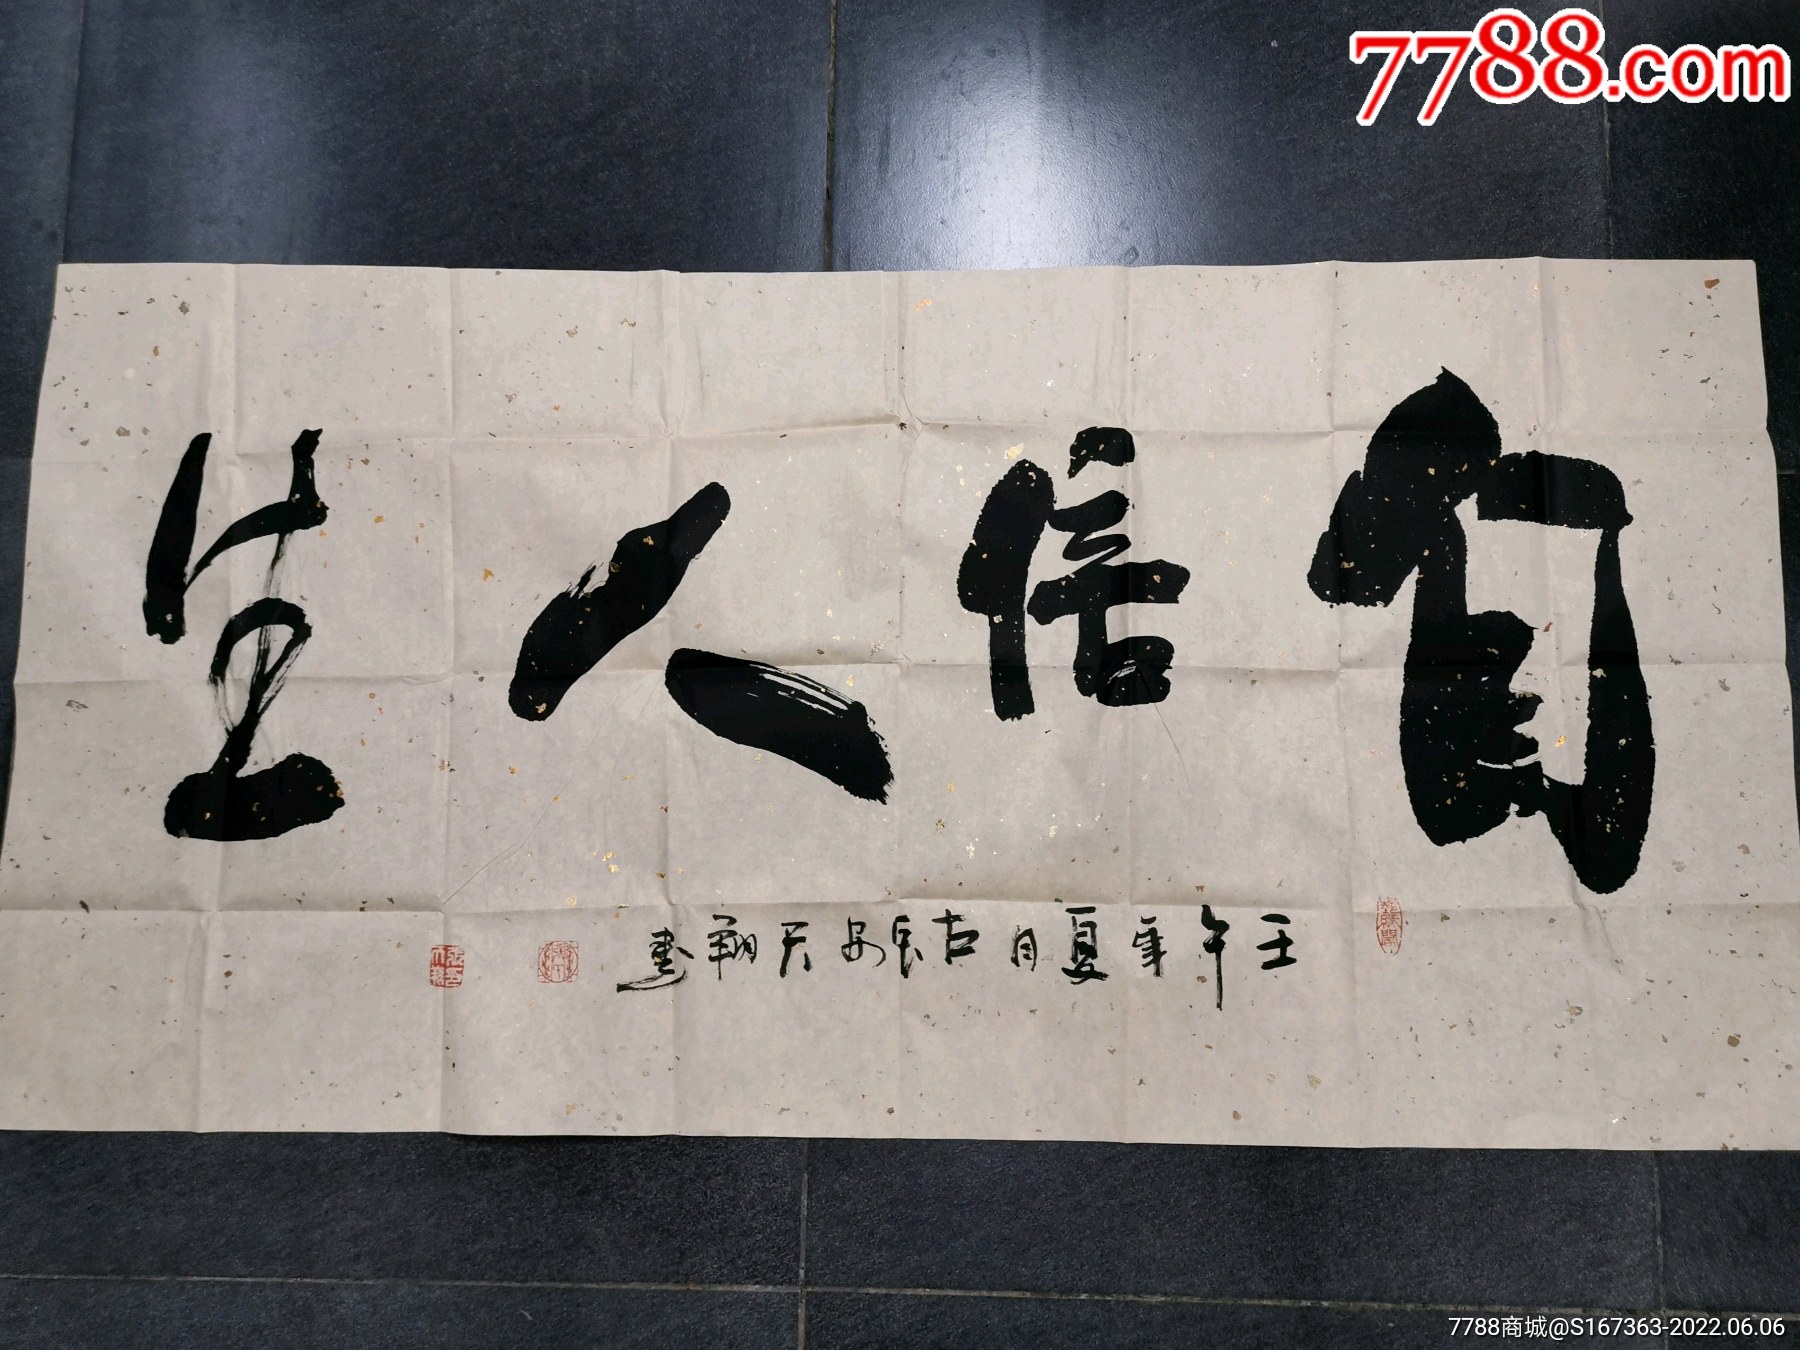 7788.com
自信人生
壬午年夏月古長安天翔書
7788商城@S167363-2022.06.06